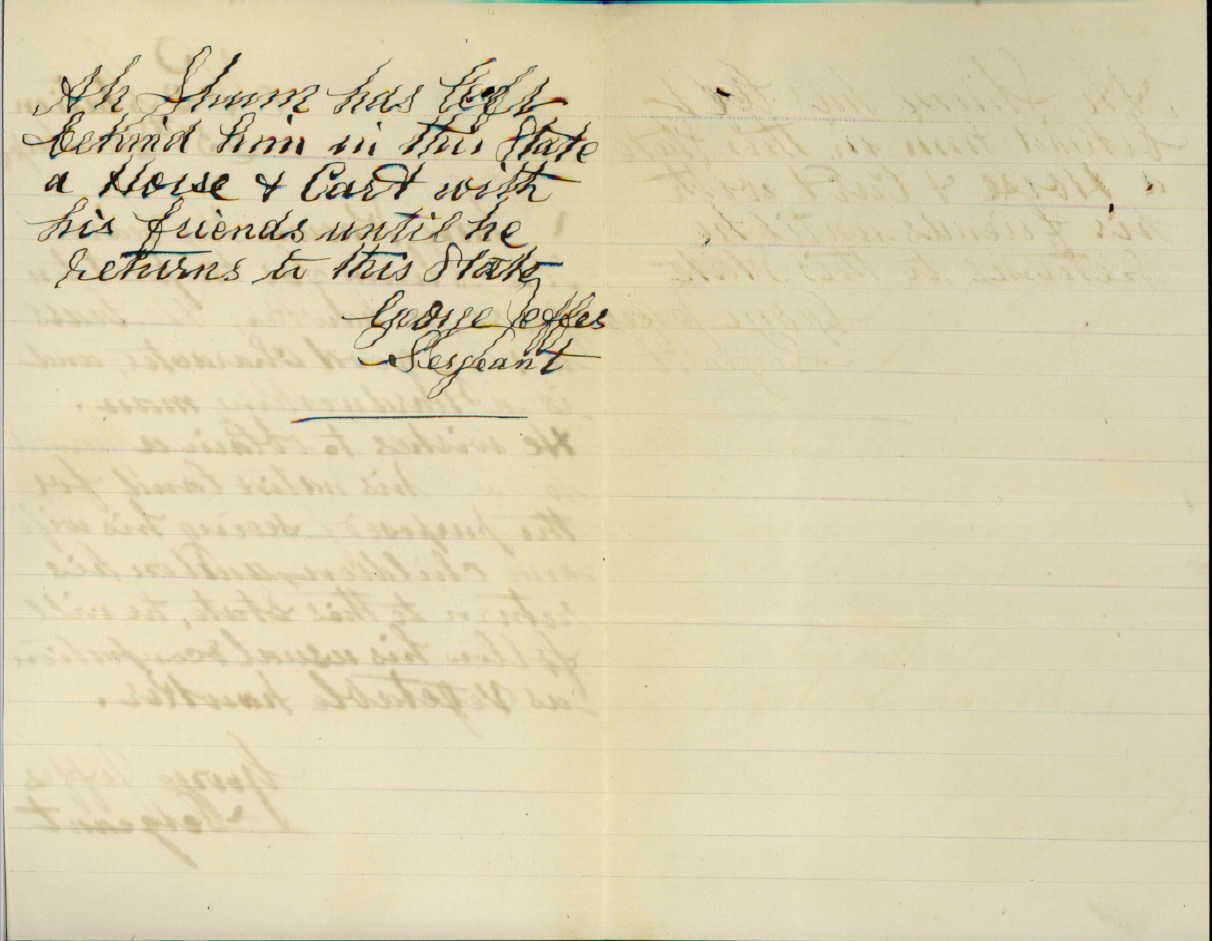 Ah Shum has left
behind him in this State
a Horse & Cart with
his friends until he
returns to this State
George Jeffes
Sergeant